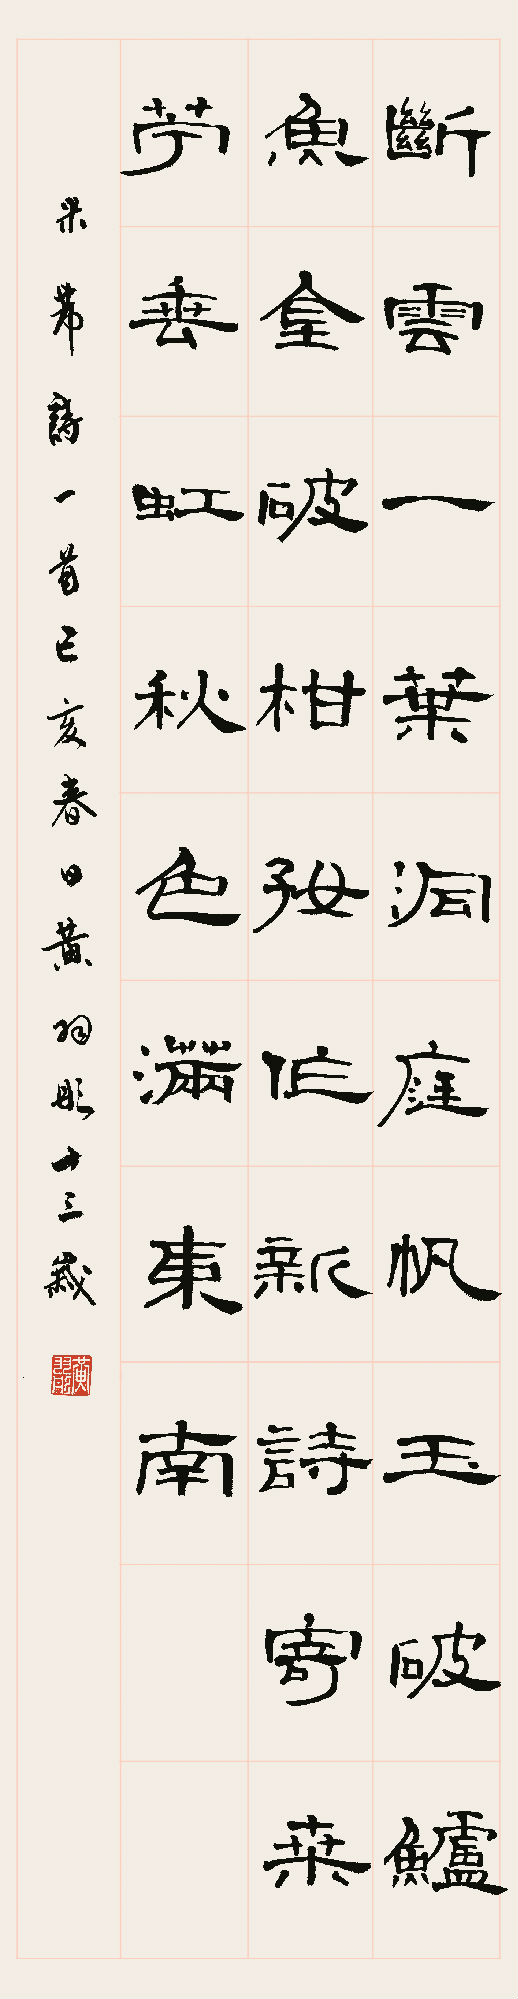 斷雲一葉洞庭帆玉破鱸
魚金破柑好作新詩寄桒
苧垂虹秋色滿東南
米芾詩一首己亥春日黃羽彤十三歲